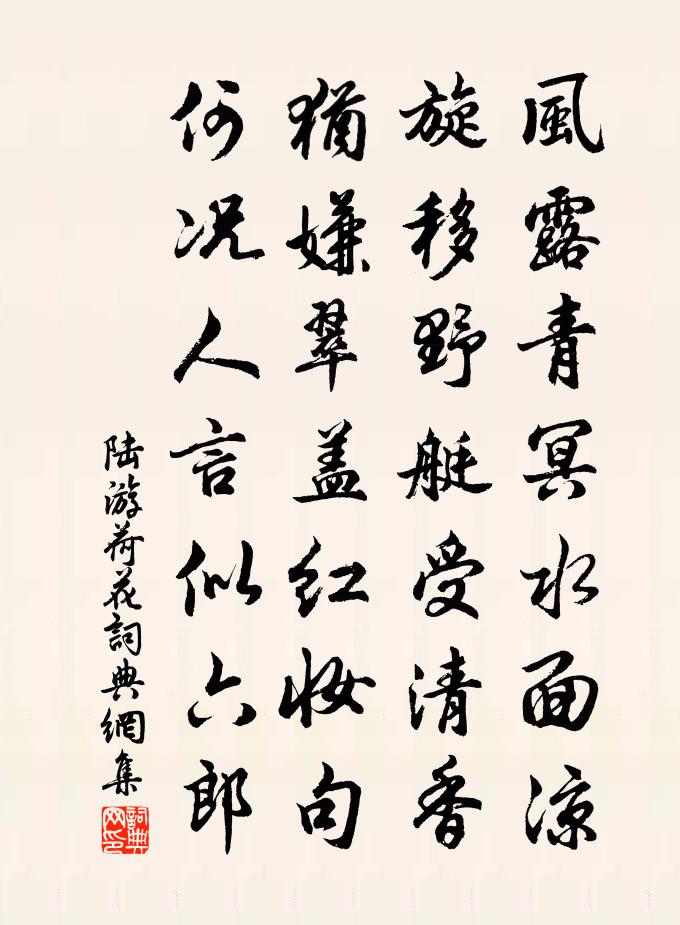 風露青冥水面涼
旋移野艇受清香
猶嫌翠盖红妆句
何况人言似六郎
陆游荷花詞典網集
詞典網印